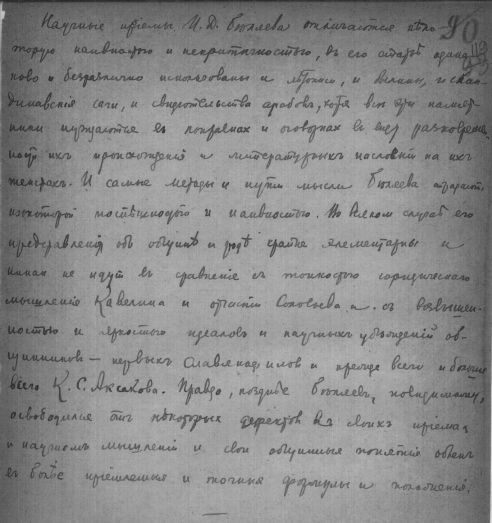 Научные приемы И. Д. Бѣляева отличаются нѣко-
торую наивностью и некритичностью, въ его статьѣ одина-
ково и безразлично использованы и лѣтописи, и былины, и скан-
динавскія саги, и свидѣтельства арабовъ, хотя всѣ эти памят-
ники нуждаются въ поправкахъ и оговоркахъ въ виду разновремен-
ности ихъ происхожденія и литературныхъ наслоеній на ихъ
И самые методы и пути мысли Бѣляева страдаютъ
некоторой поспѣшностью и наивностью. Во всякомъ случаѣ его
представленія объ общинѣ и родѣ крайне элементарны и
никакъ не идутъ въ сравненіе съ тонкостью юридическаго
мышленія Кавелина и отчасти Соловьева и съ возвышен-
ностью и яркостью идеаловъ и научныхъ убѣжденій об-
щинниковъ — первыхъ славянофиловъ и прежде всего и больше
всего К. С. Аксакова. Правда, позднѣе Бѣляевъ, повидимому,
освободился отъ нѣкоторыхъ дефектовъ въ своихъ пріемахъ
и научномъ мышленіи и свои общинныя понятія облекъ
въ болѣе пріемлемыя и точныя формулы и положенія.